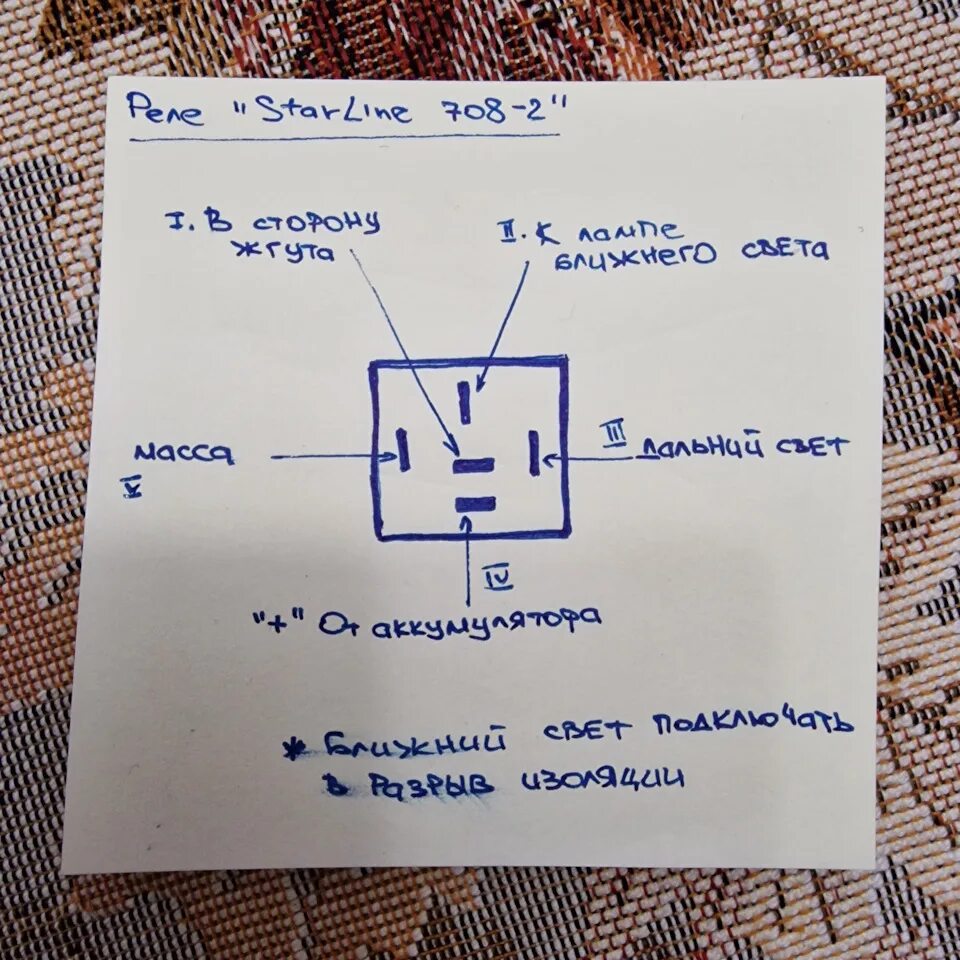 Реле "StarLine 708-2"
I. В сторону
жгута
II. К лампе
ближнего света
масса
V
III Дальний свет
IV
"+" От аккумулятора
* Ближний свет подключать
в разрыв изоляции